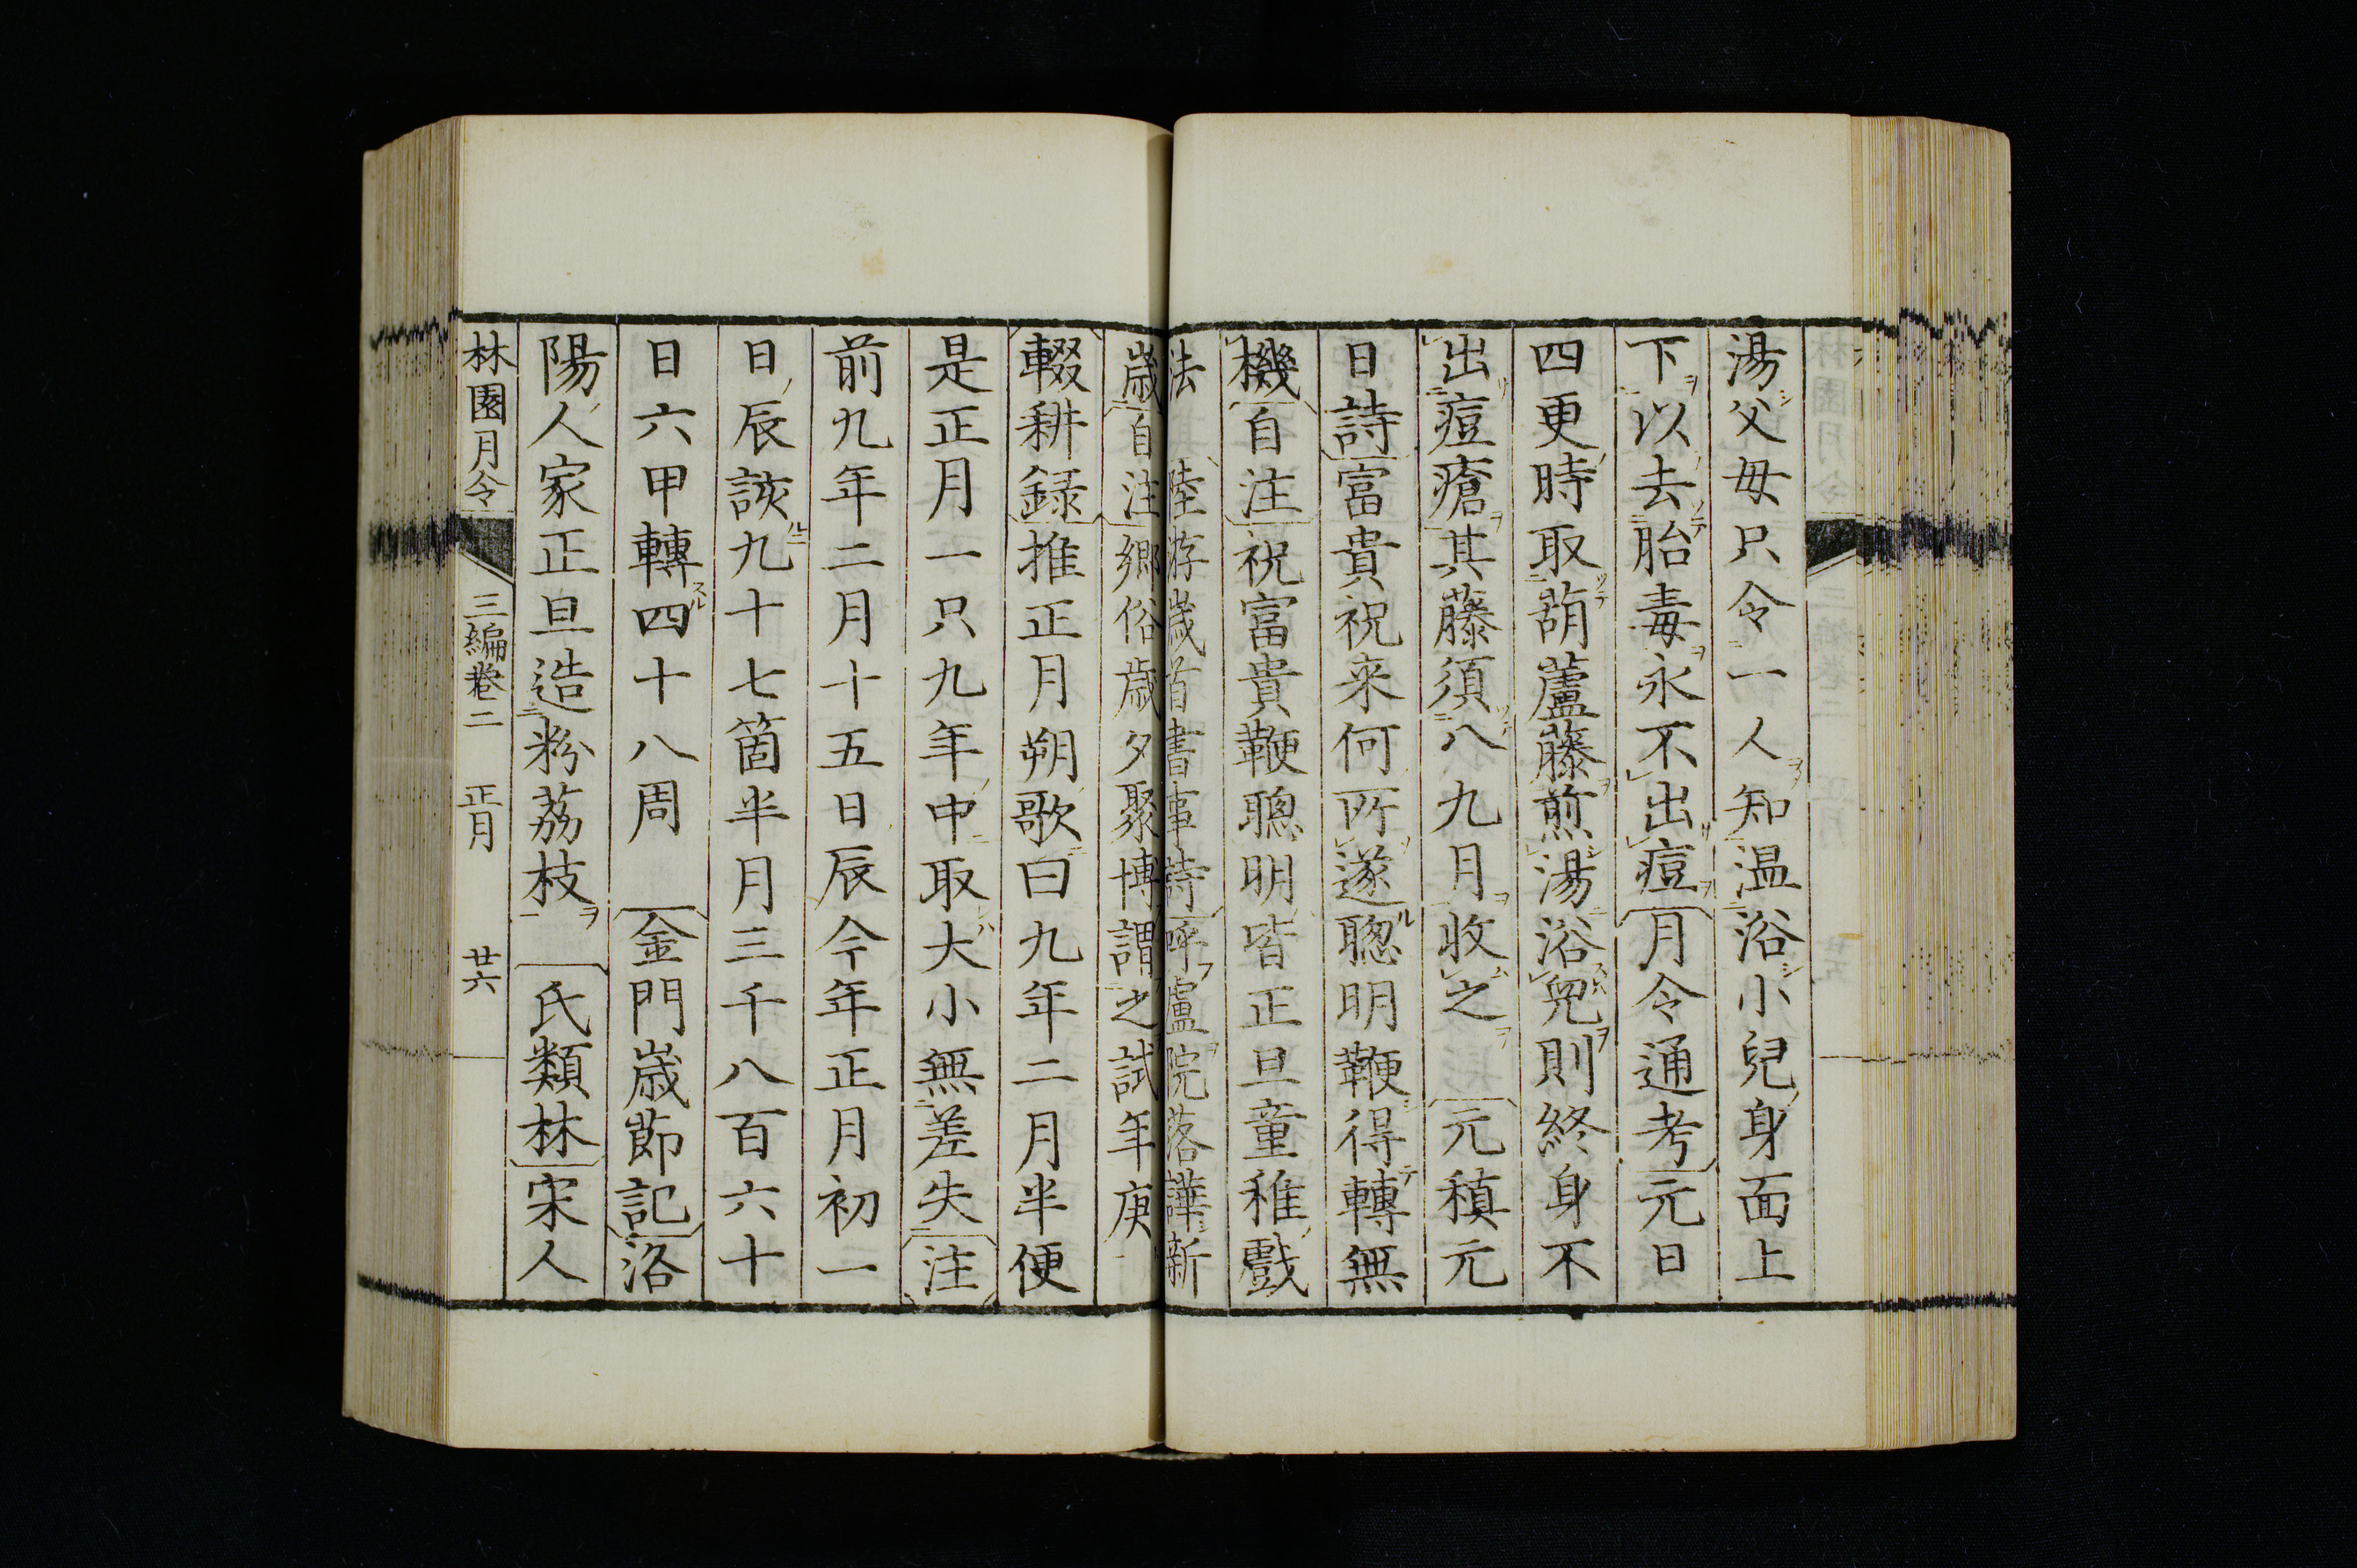 湯父母只令一人知温浴小兒身面上
下以去胎毒永不出痘月令通考元日
四更時取葫蘆藤煎湯浴兒則終身不
出痘瘡其藤須八九月收之元稹元
日詩富貴祝来何所遂聰明鞭得轉無
機自注祝富貴鞭聰明皆正旦童稚戲
法陸游歳首書事詩呼盧院落譁新
歳自注鄉俗歳夕聚博謂之試年庚
輟耕録推正月朔歌曰九年二月半便
是正月一只九年中取大小無差失注
前九年二月十五日辰今年正月初一
日辰該九十七箇半月三千八百六十
日六甲轉四十八周 金門歳節記洛
陽人家正旦造粉荔枝 氏類林宋人
林園月令 三編卷二 正月 廿六